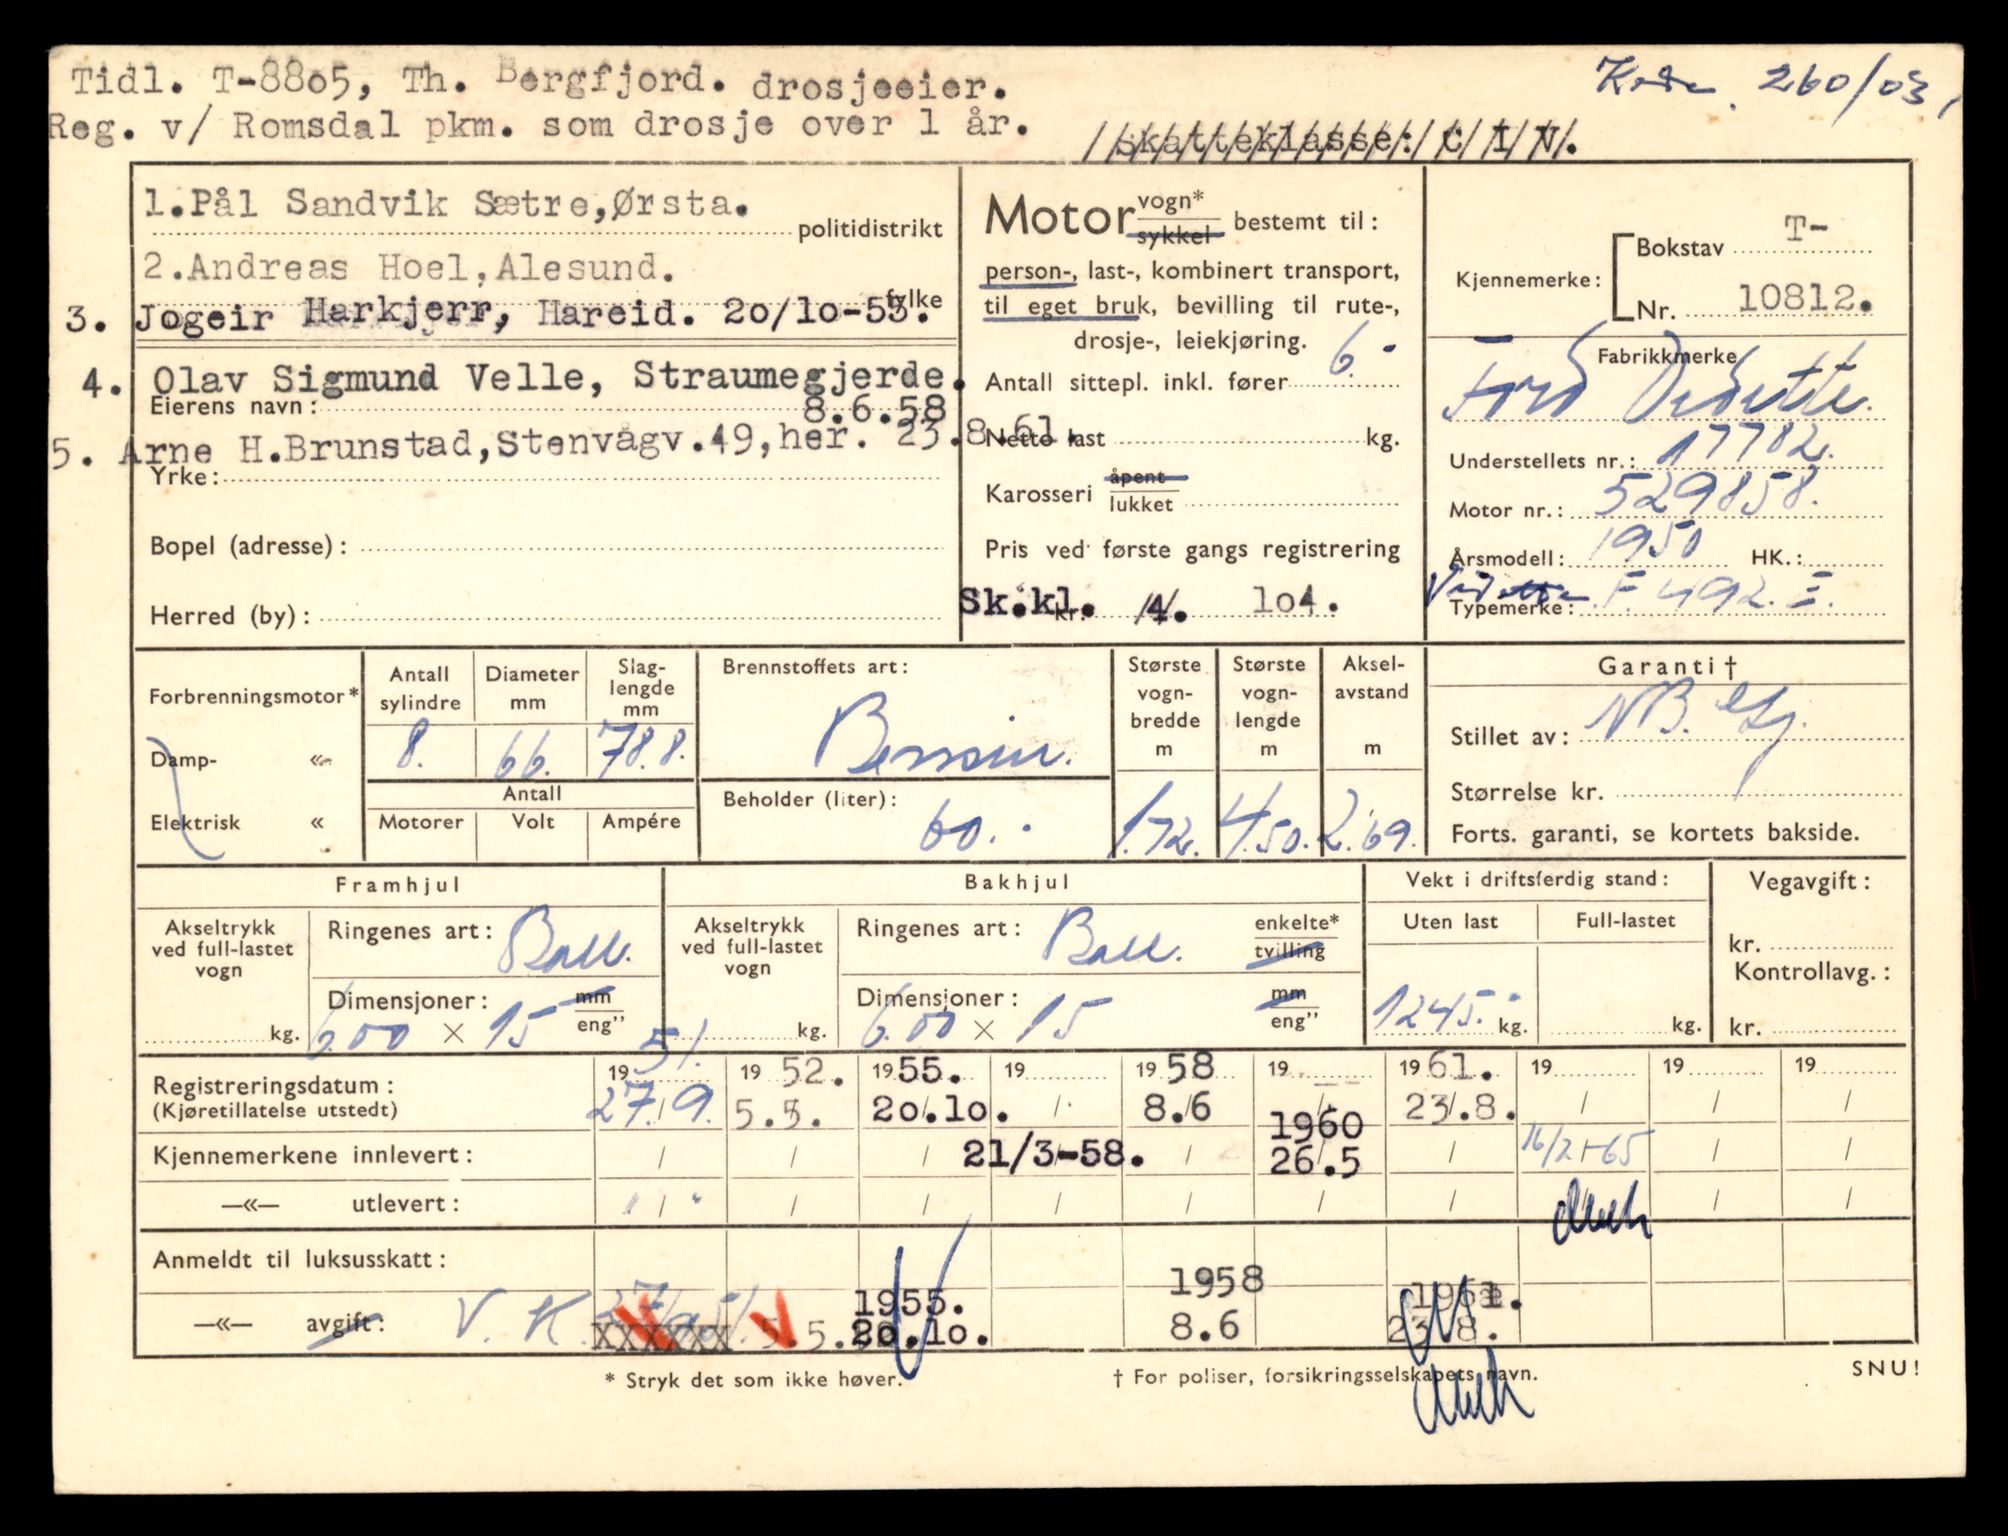 Tidl. T-8805, Th. Bergfjord. drosjeeier.
260/03
Reg. v/ Romsdal pkm. som drosje over 1 år.
/skatteklasse: C I V.
1.Pål Sandvik Sætre,Ørsta.
politidistrikt
2.Andreas Hoel,Alesund.
fylke
3. Jogeir Harkjerr, Hareid. 20/10-55.
4. Olav Sigmund Velle, Straumegjerde.
Eierens navn: 8.6.58
5. Arne H.Brunstad,Stenvågv.49,her. 23.8.61.
Yrke:
Bopel (adresse):
Herred (by):
Motor vogn* sykkel bestemt til:
person-, last-, kombinert transport,
til eget bruk, bevilling til rute-,
drosje-, leiekjøring.
Antall sittepl. inkl. fører 6.-
Netto last kg.
Karosseri åpent lukket
Pris ved første gangs registrering
Sk.kl. kr. 4. 104.
Kjennemerke: Bokstav T-
Nr. 10812.
Fabrikkmerke
Ford Vedette
Understellets nr.: 17782.
Motor nr.: 529858.
Årsmodell: 1950 HK.:
Typemerke: F. 492. E.
Forbrenningsmotor*
Damp- «
Elektrisk «
Antall sylindre
Diameter mm
Slag-lengde mm
8. 66. 78.8.
Antall
Motorer Volt Ampére
Brennstoffets art:
Bensin.
Beholder (liter):
60.-
Største vogn-bredde m
Største vogn-lengde m
Aksel-avstand m
1.72. 4.50. 2.69.
Garanti †
Stillet av: NB.
Størrelse kr.
Forts. garanti, se kortets bakside.
Framhjul
Akseltrykk ved full-lastet vogn
kg.
Ringenes art: Ball.
Dimensjoner: mm eng"
6.00 × 15
Bakhjul
Akseltrykk ved full-lastet vogn
kg.
Ringenes art: Ball. enkelte* tvilling
Dimensjoner: mm eng"
6.00 × 15
Vekt i driftsferdig stand:
Uten last Full-lastet
1245.- kg. kg.
Vegavgift:
kr.
Kontrollavg.:
kr.
Registreringsdatum: 19 51. 19 52. 19 55. 19 19 58 19 19 61. 19 19 19
(Kjøretillatelse utstedt) 27/9. 5.5. 20.10. / 8.6 / 23.8. / / /
1960
Kjennemerkene innlevert: / / / 21/3-58. / 26.5 / 16/2-65 / /
—«— utlevert: / / / / / / / / /
Anmeldt til luksusskatt:
1958
1955. 1961.
—«— avgift: V. K. 27/9 51. xxxxxx V 5.5. 20.10. 8.6 23.8.
* Stryk det som ikke høver.
† For poliser, forsikringsselskapets navn.
SNU!